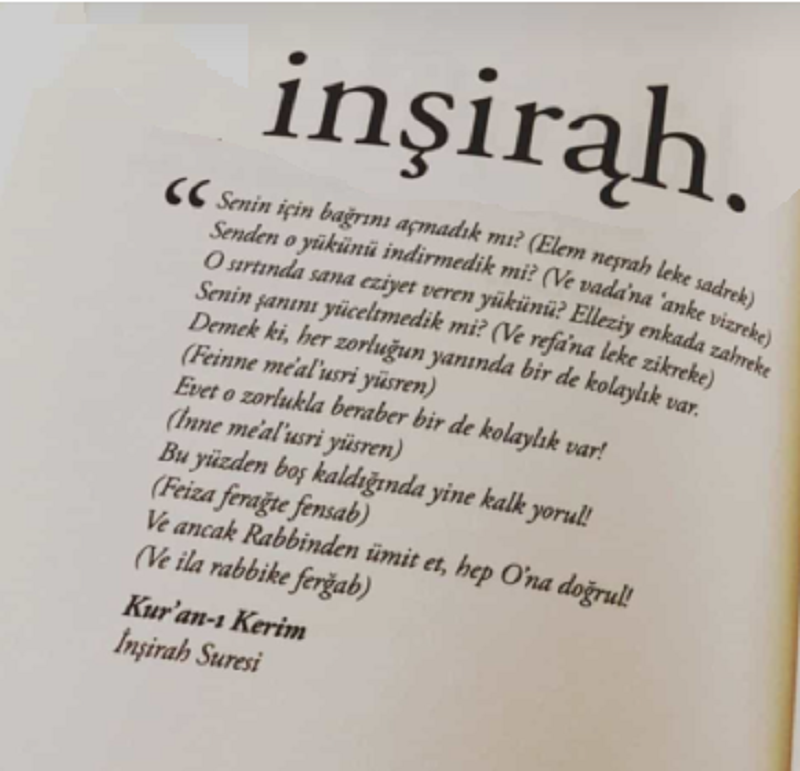 inşirąh.
“Senin için bağrını açmadık mı? (Elem neşrah leke sadrek)
Senden o yükünü indirmedik mi? (Ve vada'na 'anke vizreke)
O sırtında sana eziyet veren yükünü? Elleziy enkada zahreke
Senin şanını yüceltmedik mi? (Ve refa'na leke zikreke)
Demek ki, her zorluğun yanında bir de kolaylık var.
(Feinne me'al'usri yüsren)
Evet o zorlukla beraber bir de kolaylık var!
(İnne me'al'usri yüsren)
Bu yüzden boş kaldığında yine kalk yorul!
(Feiza ferağte fensab)
Ve ancak Rabbinden ümit et, hep O'na doğrul!
(Ve ila rabbike ferğab)
Kur'an-ı Kerim
İnşirah Suresi